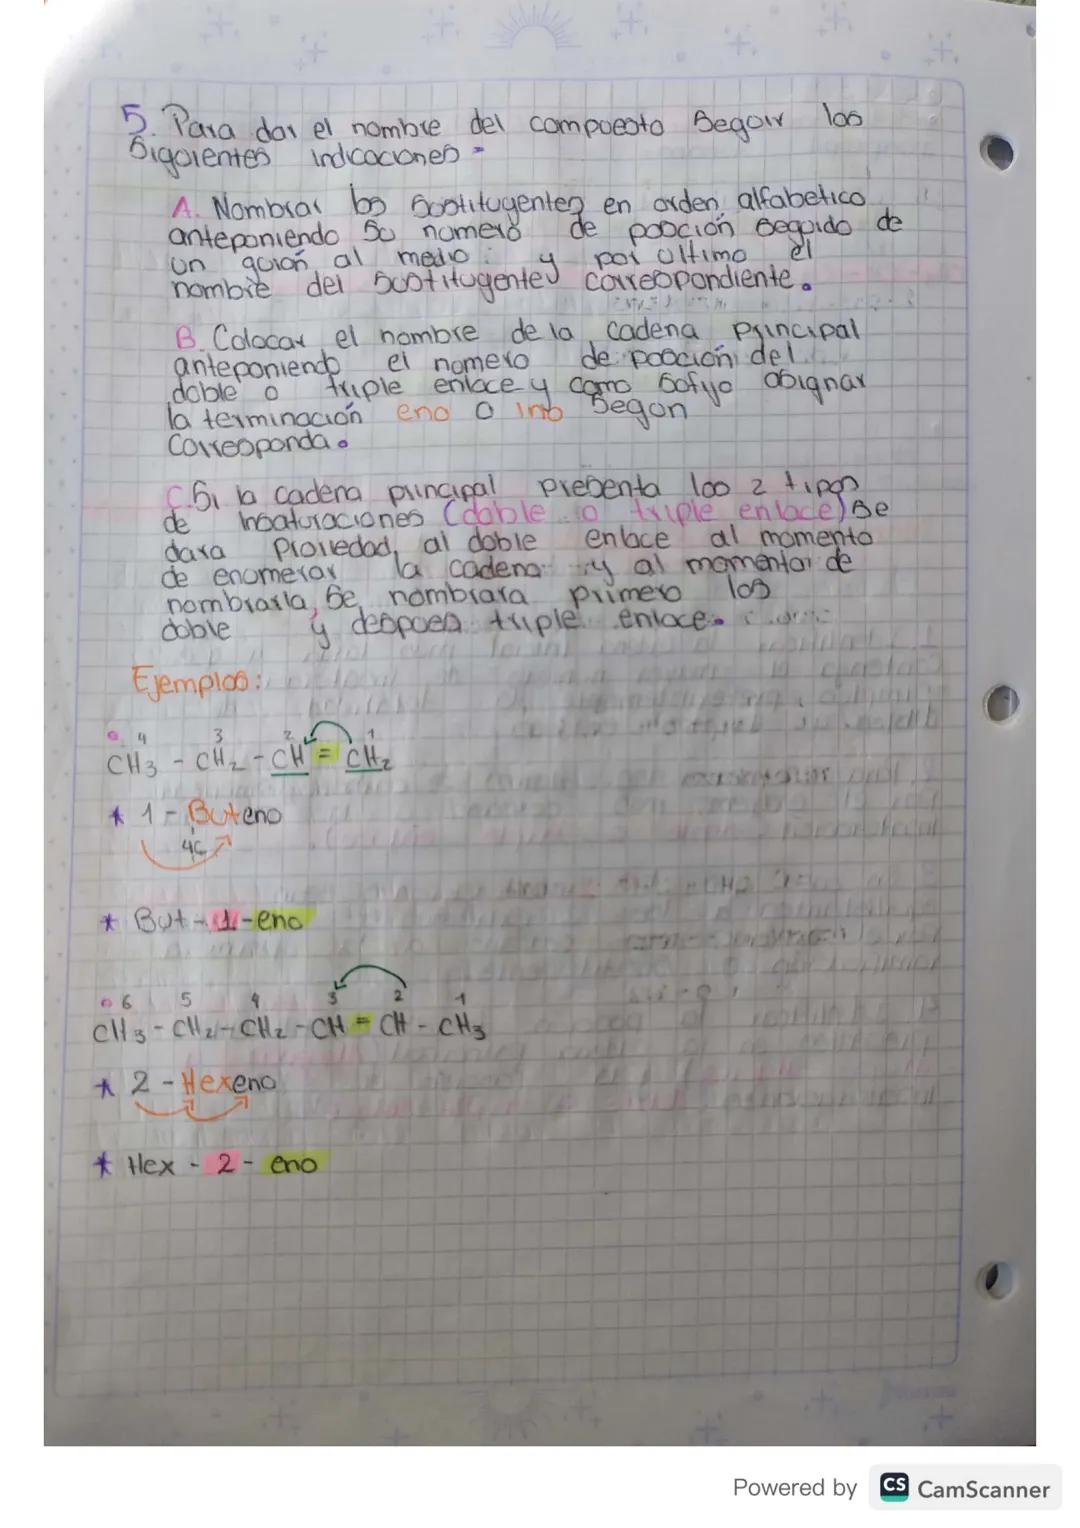 5. Para dar el nombre del compuesto Seguir los
Siguientes indicaciones -
A. Nombrar los Sustituyentes en orden alfabetico
anteponiendo Su numero de posición seguido de
un guión al medio y por ultimo el
nombre del Sustituyente correspondiente.
B. Colocar el nombre de la cadena principal
anteponiendo el numero de posición del
doble o triple enlace y como Sufijo asignar
la terminación eno o ino Segun
Corresponda.
C. Si la cadena principal presenta los 2 tipos
de Insaturaciones (doble o triple enlace) Se
dara prioriedad, al doble enlace al momento
de enumerar la cadena y al momento de
nombrarla, Se nombrara primero los
doble y despues triple enlace.
Ejemplos:
4 3 2 1
CH3 - CH2 - CH = CH2
* 1 - Buteno
4C
* But - 1 - eno
6 5 4 3 2 1
CH3 - CH2 - CH2 - CH = CH - CH3
* 2 - Hexeno
* Hex - 2 - eno
Powered by CS CamScanner